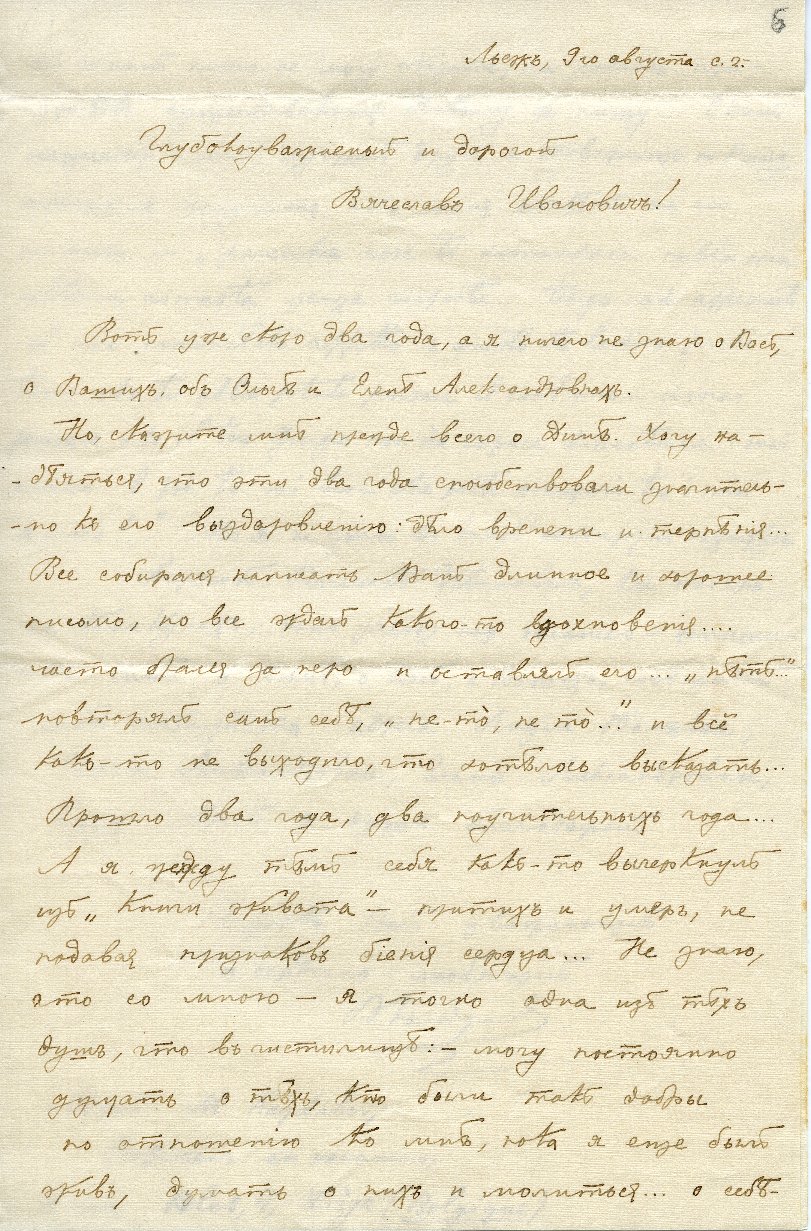 6
Льежъ, 9го августа с. г.
Глубокоуважаемый и дорогой
Вячеславъ Ивановичъ!
Вотъ уже скоро два года, а я ничего не знаю о Васъ,
о Вашихъ, объ Ольгѣ и Еленѣ Александровнахъ.
Но, скажите мнѣ прежде всего о Димѣ. Хочу на-
-дѣяться, что эти два года способствовали значитель-
-но къ его выздоровленію: дѣло времени и терпѣнія...
Все собирался написать Вамъ длинное и хорошее
письмо, но все ждалъ какого-то вдохновенія....
часто брался за перо и оставлялъ его... „нѣтъ..."
повторялъ самъ себѣ, „не-то̀, не то̀..." и всё
какъ-то не выходило, что хотѣлось высказать...
Прошло два года, два поучительныхъ года...
А я между тѣмъ себя какъ-то вычеркнулъ
изъ „Книги живота" – притихъ и умеръ, не
подавая признаковъ біенія сердца... Не знаю,
что со мною – я точно одна изъ тѣхъ
душъ, что въ чистилищѣ: – могу постоянно
думать о тѣхъ, кто были такъ добры
по отношенію ко мнѣ, пока я еще былъ
живъ, думать о нихъ и молиться... о себѣ-